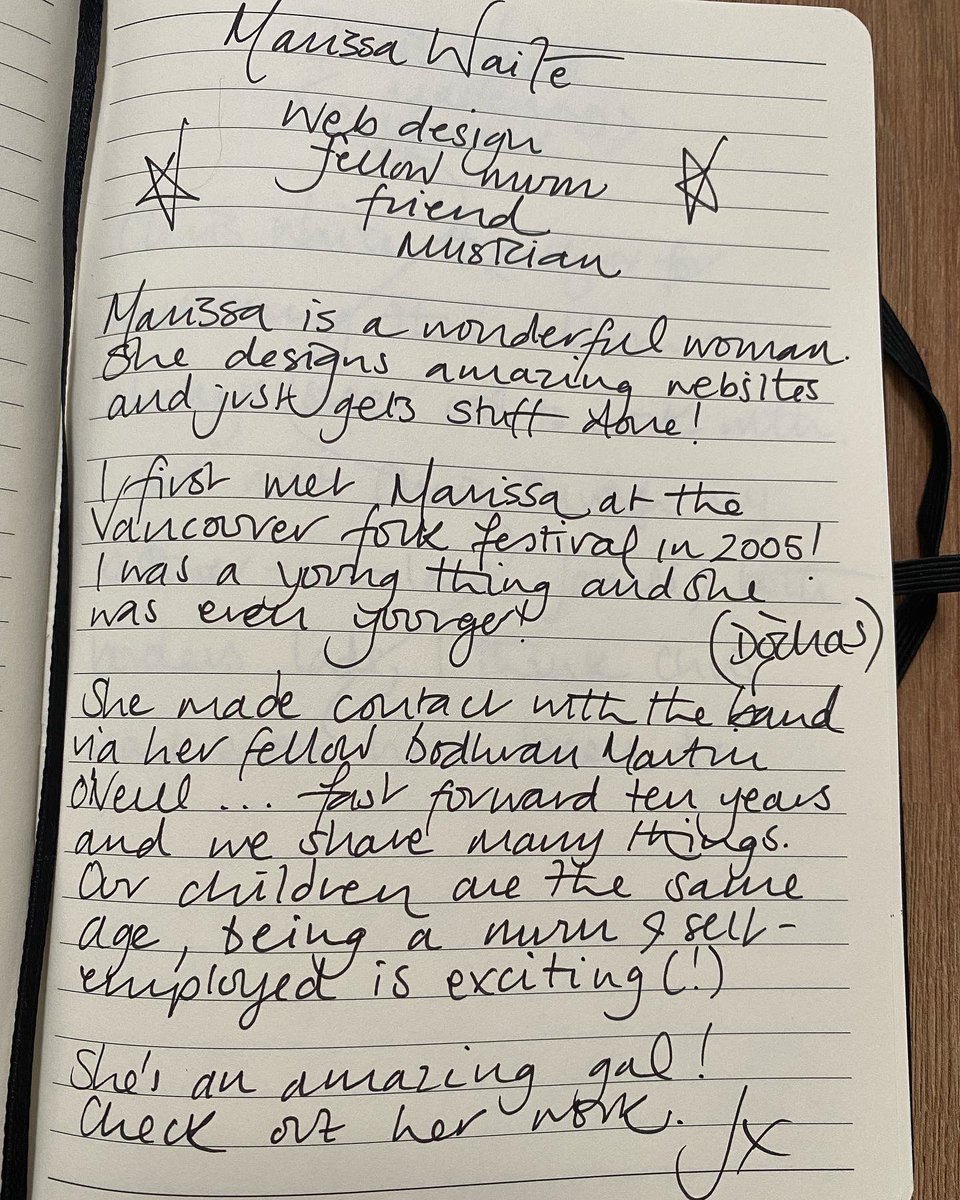 Marissa Waite
Web design
fellow mum
friend
musician
Marissa is a wonderful woman.
She designs amazing websites
and just gets stuff done!
I first met Marissa at the
Vancouver folk festival in 2005!
I was a young thing and she
was even younger!
(Dòchas)
She made contact with the band
via her fellow bodhran Martin
O'Neill ... fast forward ten years
and we share many things.
Our children are the same
age, being a mum & self-
employed is exciting (!)
She's an amazing gal!
Check out her work.
Jx